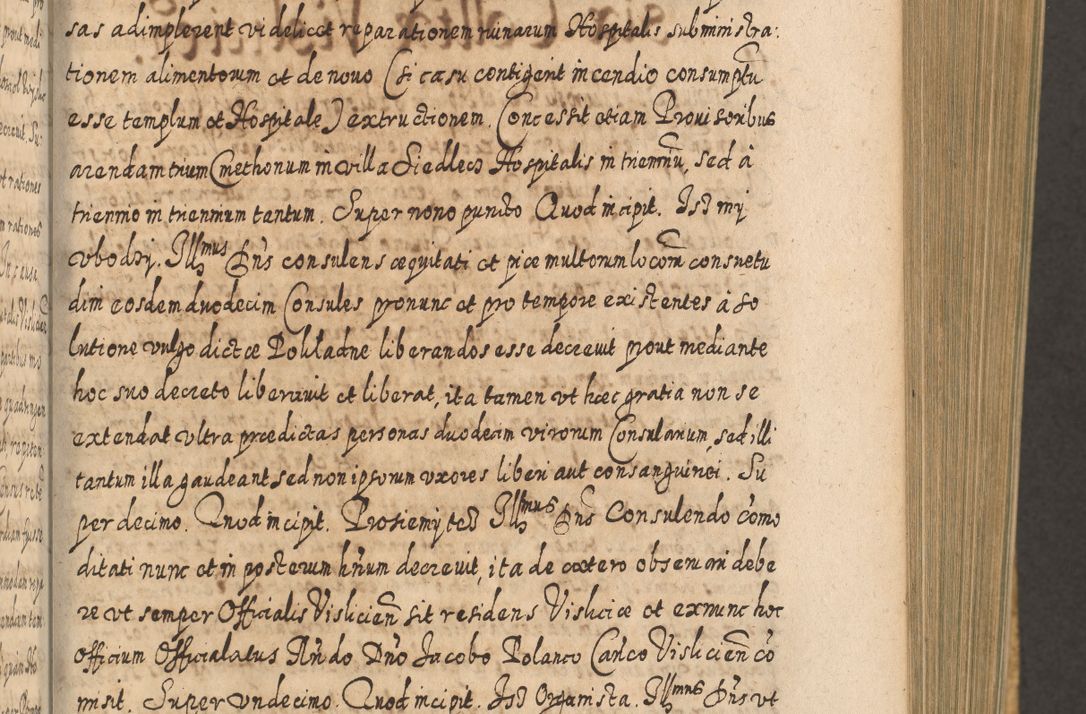 sas adimplerent videlicet reparationem ruinarum Hospitalis subministra:
tionem alimentorum et denovo (si casu contigerit incendio consumptũ
esse templum et Hospitale) extructionem. Concessit etiam Provisoribus
arendam trium Cmethonum in villa Siedlecz Hospitalis in trienniũ, sed à
triennio in triennium tantum. Super nono puncto Quod incipit. Jst my
vbodzy. Jllmus Dñs consulens æquitati et pice multorum locorũ consuetu
dini eosdem duodecim Consules pronunc et pro tempore existentes à so
lutione vulgo dictæ Pokładne liberandos esse decrevit prout mediante
hoc suo decreto liberavit et liberat, ita tamen vt hæc gratia non se
extendat vltra prædictas personas duodecim virorum Consularium, sed illi
tantum illa gaudeant sed non ipsorum vxores liberi aut consanguinei. Su
per decimo. Quod incipit. Prosiemy też Jllmus Dñs Consulendo cómo
ditati nunc et in posterum hñum decrevit, ita de cætero observari debe
re vt semper Officialis Visliciēn sit residens Visliciæ et exnunc hoc
officium Officialatus Rñdo Dño Jacobo Polanco Cañco Visliciēn cõ
misit. Super vndecimo. Quod incipit. Jst Organista. Jllmus Dñs vt